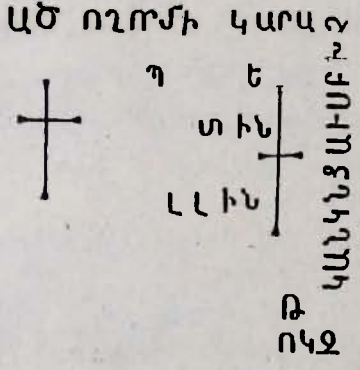 ԱԾ ՈՂՈՐՄԻ ԿԱՐԱ
Պ Ե
Տ ԻՆ
ԼԼ ԻՆ
ԿԱՆԿՆՑԱՒՍԲԽՉ
Թ
ՈԿՋ